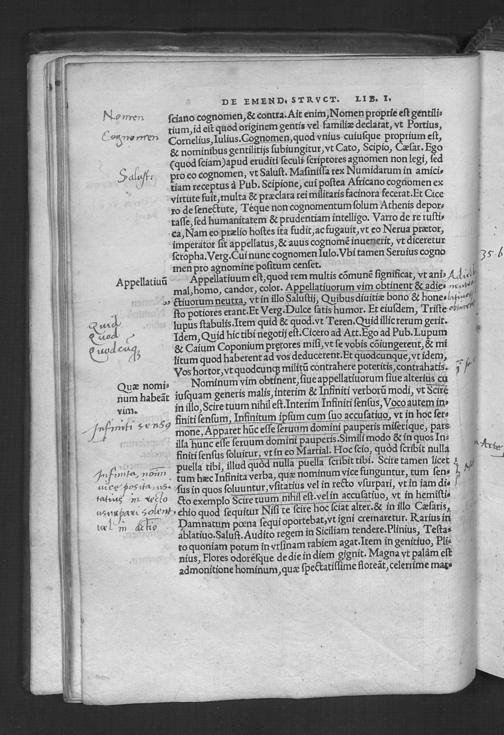 DE EMEND. STRVCT. LIB. I.
Nomen
Cognomen
Salust.
sciano cognomen, & contra. Ait enim, Nomen proprie est gentili-
tium, id est quod originem gentis vel familiæ declarat, vt Portius,
Cornelius, Iulius. Cognomen, quod vnius cuiusque proprium est,
& nominibus gentilitijs subiungitur, vt Cato, Scipio, Cæsar. Ego
(quod sciam) apud eruditi seculi scriptores agnomen non legi, sed
pro eo cognomen, vt Salust. Masinissa rex Numidarum in amici-
tiam receptus à Pub. Scipione, cui postea Africano cognomen ex
virtute fuit, multa & præclara rei militaris facinora fecerat. Et Cice
ro de senectute, Téque non cognomentum solum Athenis depor-
tasse, sed humanitatem & prudentiam intelligo. Varro de re rusti
ca, Nam eo prælio hostes ita fudit, ac fugauit, vt eo Nerua prætor,
imperator sit appellatus, & auus cognomē inuenerit, vt diceretur
scropha. Verg. Cui nunc cognomen Iulo. Vbi tamen Seruius cogno
men pro agnomine positum censet.
Appellatiuū
Appellatiuum est, quod rem multis cōmunē significat, vt ani-
mal, homo, candor, color. Appellatiuorum vim obtinent & adie-
ctiuorum neutra, vt in illo Salustij, Quibus diuitiæ bono & hone-
sto potiores erant. Et Verg. Dulce satis humor. Et eiusdem, Triste
lupus stabulis. Item quid & quod. vt Teren. Quid illic rerum gerit.
Idem, Quid hic tibi negotij est. Cicero ad Att. Ego ad Pub. Lupum
& Caium Coponium prętores misi, vt se vobis cōiungerent, & mi
litum quod haberent ad vos deducerent. Et quodcunque, vt idem,
Vos hortor, vt quodcunq; militū contrahere poteritis, contrahatis.
Quid
Quod
Quodcūq;
35.6
Quæ nomi-
num habeāt
vim.
Nominum vim obtinent, siue appellatiuorum siue alterius cu
iusquam generis malis, interim & Infinitiui verborū modi, vt Scire
in illo, Scire tuum nihil est. Interim Infiniti sensus, Voco autem in-
finiti sensum, Infinitum ipsum cum suo accusatiuo, vt in hoc ser-
mone, Apparet húc esse seruum domini pauperis miserique, pars
illa hunc esse seruum domini pauperis. Simili modo & in quos In-
finiti sensus soluitur, vt in eo Martial. Hoc scio, quòd scribit nulla
puella tibi, illud quòd nulla puella scribit tibi. Scire tamen licet
tum hæc Infinita verba, quæ nominum vice funguntur, tum sen-
sus in quos soluuntur, vsitatius vel in recto vsurpari, vt in iam di-
cto exemplo Scire tuum nihil est. vel in accusatiuo, vt in hemisti-
chio quod sequitur Nisi te scire hoc sciat alter. & in illo Cæsaris,
Damnatum pœna sequi oportebat, vt igni cremaretur. Rarius in
ablatiuo. Salust. Audito regem in Siciliam tendere. Plinius, Testa-
to quoniam potum in vrinam rabiem agat. Item in genitiuo, Pli-
nius, Flores odorésque de die in diem gignit. Magna vt palàm est
admonitione hominum, quæ spectatissime floreāt, celerrime mar-
Infiniti sensq
Infinita nōm
vice posita usi
tatius in recto
usurpari solent
vel in actio